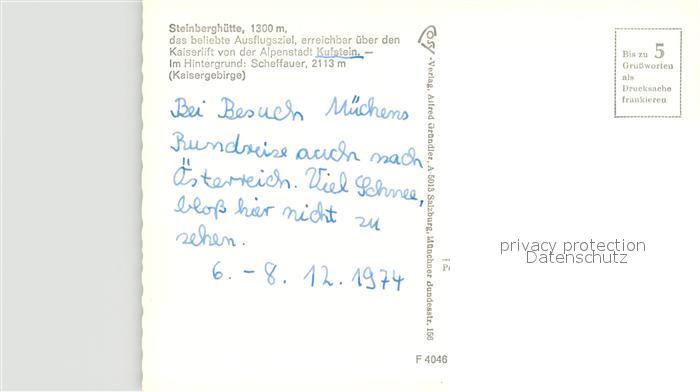 Steinberghütte, 1300 m,
das beliebte Ausflugsziel, erreichbar über den
Kaiserlift von der Alpenstadt Kufstein. —
Im Hintergrund: Scheffauer, 2113 m
(Kaisergebirge)
Bei Besuch Müchens
Rundreise auch nach
Österreich. Viel Schnee,
bloß hier nicht zu
sehen.
6. - 8. 12. 1974
-Verlag, Alfred Gründler, A 5013 Salzburg, Münchner Bundesstr. 156
F 4046
Bis zu 5
Grußworten
als
Drucksache
frankieren
privacy protection
Datenschutz